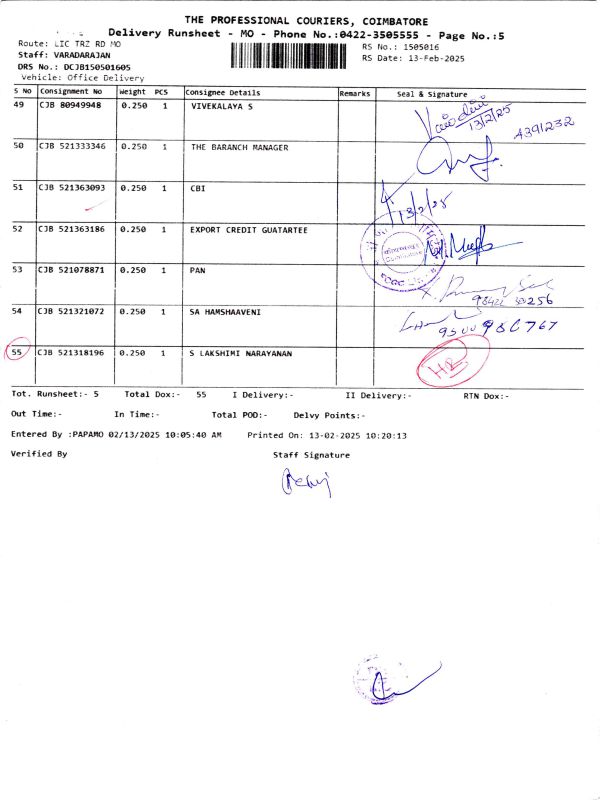 THE PROFESSIONAL COURIERS, COIMBATORE
Delivery Runsheet - MO - Phone No.:0422-3505555 - Page No.:5
Route: LIC TRZ RD MO
RS No.: 1505016
Staff: VARADARAJAN
RS Date: 13-Feb-2025
DRS No.: DCJB150501605
Vehicle: Office Delivery
S No Consignment No Weight PCS Consignee Details Remarks Seal & Signature
49 CJB 80949948 0.250 1 VIVEKALAYA S
13/2/25
4391232
50 CJB 521333346 0.250 1 THE BARANCH MANAGER
51 CJB 521363093 0.250 1 CBI
13/2/25
52 CJB 521363186 0.250 1 EXPORT CREDIT GUATARTEE
53 CJB 521078871 0.250 1 PAN
54 CJB 521321072 0.250 1 SA HAMSHAAVENI
55 CJB 521318196 0.250 1 S LAKSHIMI NARAYANAN
Tot. Runsheet:- 5 Total Dox:- 55 I Delivery:- II Delivery:- RTN Dox:-
Out Time:- In Time:- Total POD:- Delvy Points:-
Entered By :PAPAMO 02/13/2025 10:05:40 AM Printed On: 13-02-2025 10:20:13
Verified By Staff Signature